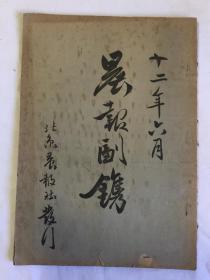 十二年六月
晨報副鐫
北京晨報社發行